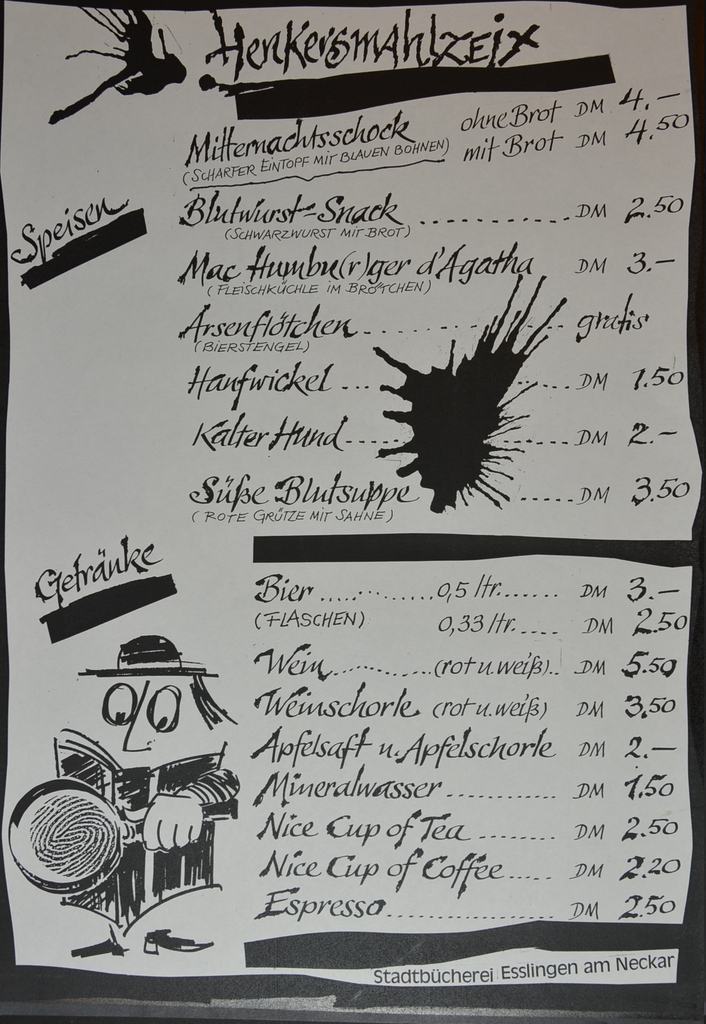 Henkersmahlzeit
Mitternachtsschock ohne Brot DM 4.–
(SCHARFER EINTOPF MIT BLAUEN BOHNEN) mit Brot DM 4.50
Speisen
Blutwurst-Snack .......... DM 2.50
(SCHWARZWURST MIT BROT)
Mac Humbu(r)ger d'Agatha DM 3.–
(FLEISCHKÜCHLE IM BRÖTCHEN)
Arsenflötchen .......... gratis
(BIERSTENGEL)
Hanfwickel .......... DM 1.50
Kalter Hund .......... DM 2.–
Süße Blutsuppe ..... DM 3.50
(ROTE GRÜTZE MIT SAHNE)
Getränke
Bier .......... 0,5 ltr. ...... DM 3.–
(FLASCHEN) 0,33 ltr. .... DM 2.50
Wein .......... (rot u. weiß).. DM 5.50
Weinschorle (rot u. weiß) DM 3.50
Apfelsaft u. Apfelschorle DM 2.–
Mineralwasser .......... DM 1.50
Nice Cup of Tea ........ DM 2.50
Nice Cup of Coffee ..... DM 2.20
Espresso .......... DM 2.50
Stadtbücherei Esslingen am Neckar